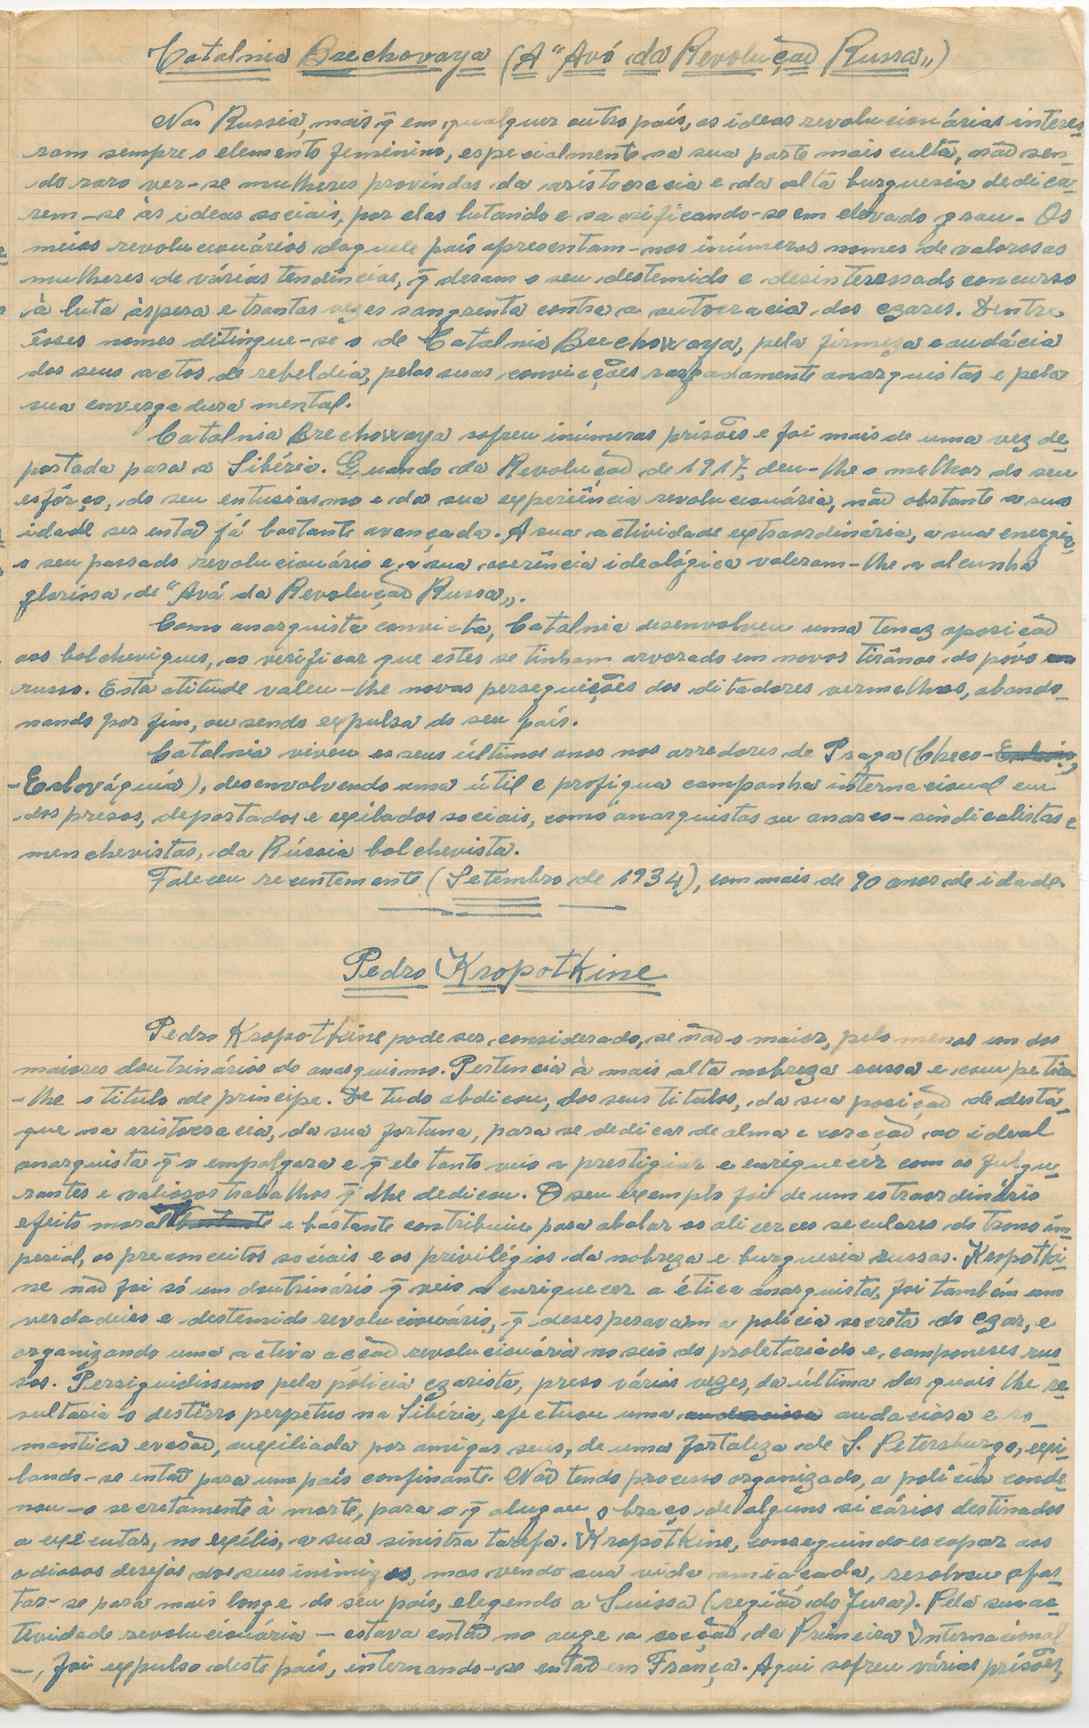 Catalnia Brechovaya (A "Avó da Revolução Russa")
Na Russia, mais q̃ em qualquer outro país, as ideas revolucionárias interes
ram sempre o elemento feminino, especialmente na sua parte mais culta, não sen-
do raro ver-se mulheres provindas da aristocracia e da alta burguesia dedica-
rem-se às ideas sociais, por elas lutando e sacrificando-se em elevado grau. Os
meios revolucionários daquele país apresentam-nos inúmeros nomes de valorosas
mulheres de várias tendências, q̃ deram o seu destemido e desinteressado concurso
à luta áspera e trantas vezes sangrenta contra a autocracia dos czares. Dentre
êsses nomes ditingue-se o de Catalnia Brechovvaya, pela firmeza e audácia
dos seus actos de rebeldia, pelas suas convicções rasgadamente anarquistas e pela
sua envergadura mental.
Catalnia Brechovvaya sofreu inúmeras prisões e foi mais de uma vez de-
portada para a Sibéria. Quando da Revolução de 1917, deu-lhe o melhor do seu
esfôrço, do seu entusiasmo e da sua experiência revolucionária, não obstante a sua
idade ser então já bastante avançada. A sua actividade extraordinária, a sua energia
o seu passado revolucionário e a sua coerência ideológica valeram-lhe a alcunha
gloriosa de "Avó da Revolução Russa".
Como anarquista convicta, Catalnia desenvolveu uma tenaz oposição
aos bolcheviques, ao verificar que estes se tinham arvorado em novos tirânos do povo
russo. Esta atitude valeu-lhe novas perseguições dos ditadores vermelhos, abando-
nando por fim, ou sendo expulsa do seu país.
Catalnia viveu os seus últimos anos nos arredores de Praga (Checo-
-Eslováquia), desenvolvendo uma útil e profiqua campanha internacional em
dos presos, deportados e exilados sociais, como anarquistas ou anarco-sindicalistas e
menchevistas, da Rússia bolchevista.
Faleceu recentemente (Setembro de 1934), com mais de 90 anos de idade.
Pedro Kropotkine
Pedro Kropotkine pode ser considerado, se não o maior, pelo menos um dos
maiores doutrinários do anarquismo. Pertencia à mais alta nobreza russa e competia-
-lhe o titulo de principe. De tudo abdicou, dos seus titulos, da sua posição de destá-
que na aristocracia, da sua fortuna, para se dedicar de alma e coração ao ideal
anarquista q̃ o empolgara e q̃ ele tanto veio a prestigiar e enriquecer com os fulgu-
rantes e valiosos trabalhos q̃ lhe dedicou. O seu exemplo foi de um extraordinário
efeito moral e bastante contribuiu para abalar os alicerces seculares do trono im-
perial, os preconceitos sociais e os privilégios da nobreza e burguesia russas. Kropotki-
ne não foi só um doutrinário q̃ veio a enriquecer a ética anarquista, foi também um
verdadeiro e destemido revolucionário, q̃ desesperavam a policia secreta do czar, e
organizando uma activa acção revolucionária no seio do proletariado e camponeses rus-
sos. Perseguidissemo pela policia czarista, preso várias vezes, da última das quais lhe re-
sultaria o destêrro perpetuo na Sibéria, efectuou uma audaciosa e ro-
mantica evasão, auxiliada por amigos seus, de uma fortaleza de S. Petersburgo, exi-
lando-se então para um país confinante. Não tendo processo organizado, a policia conde-
nou-o secretamente à morte, para o q̃ alugou o braço de alguns sicários destinados
a executar, no exílio, a sua sinistra tarefa. Kropotkine, conseguindo escapar aos
odiosos desejos dos seus inimigos, mas vendo sua vida ameaçada, resolveu afas-
tar-se para mais longe do seu país, elegendo a Suissa (região do Jura). Pela sua ac-
tividade revolucionária — estava então no auge a secção da Primeira Internacional
—, foi expulso deste país, internando-se então em França. Aqui sofreu várias prisões,